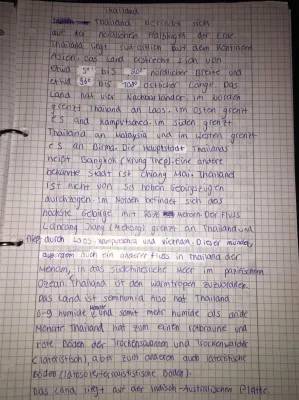 Thailand
Thailand befindet sich
auf der nördlichen Halbkugel der Erde.
Thailand liegt südöstlich auf dem Kontinent
Asien. Das Land erstreckt sich von
etwa 5° bis 20° nördlicher Breite und
etwa bis östlicher Länge. Das
Land hat vier Nachbarländer. Im Norden
grenzt Thailand an Laos. Im Osten grenzt
es and Kamputschea. Im Süden grenzt
Thailand an Malaysia und im Westen grenzt
es an Birma. Die Hauptstadt Thailands
heißt Bangkok (Krung Thep). Eine andere
bekannte Stadt ist Chiang Mai. Thailand
ist nicht von so hohen Gebirgszügen
durchzogen. Im Norden befindet sich das
höchste Gebirge mit Metern. Der Fluss
Lancang Jiang (Mekong) grenzt an Thailand und
fließt durch Laos, Kamputschea und Vietnam. Dieser mündet,
auch ein anderer Fluss in Thailand der
Menam, in das südchinesische Meer im pazifischen
Ozean. Thailand ist den Warmtropen zuzuordnen.
Das Land ist semihumid also hat Thailand
6-9 humide Monate und somit mehr humide als aride
Monate. Thailand hat zum einen rotbraune und
rote Böden der Trockensavannen und Trockenwälder
(lateritisch), aber zum anderen auch lateritische
Böden
Das Land liegt auf der Indisch-Australischen Platte.